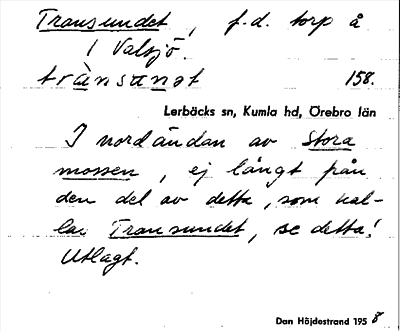 Transundet, f.d. torp å
1 Valsjö.
trànsundt 158.
Lerbäcks sn, Kumla hd, Örebro län
I nordändan av Stora
mossen, ej långt från
den del av detta, som kal-
las Transundet, se detta!
Utlagt.
Dan Höjdestrand 1958